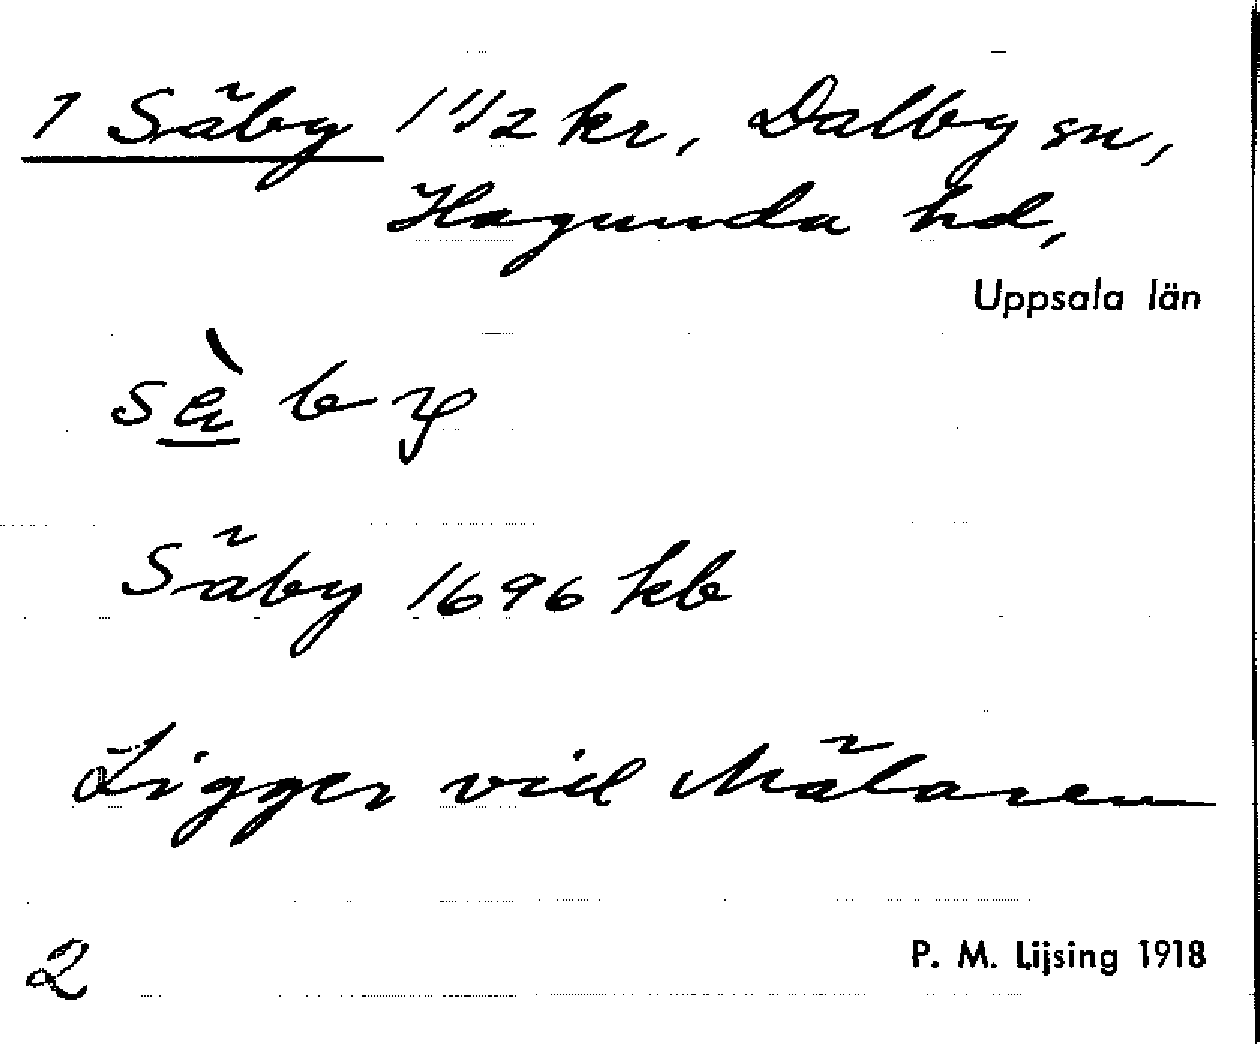 1 Säby 1 1/2 kr, Dalby sn,
Hagunda hd,
Uppsala län
sè by
Säby 1696 kb
Ligger vid Mälaren
2
P. M. Lijsing 1918